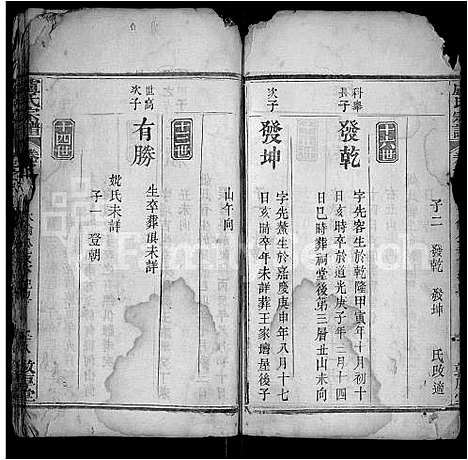 子二 發乾 發坤 民政適
十六世
科舉長子
發乾
字先容生於乾隆甲寅年十月初十
日亥時卒於道光庚子年二月十四
日巳時葬祠堂後第三層丑山未向
次子
發坤
字先薰生於嘉慶庚申年八月十七
日亥時卒年未詳葬王家壋屋後子
山午向
十三世
世高次子
有勝
生卒葬俱未詳
妣氏未詳
子一 登朝
十四世
氏宗譜
敦睦堂